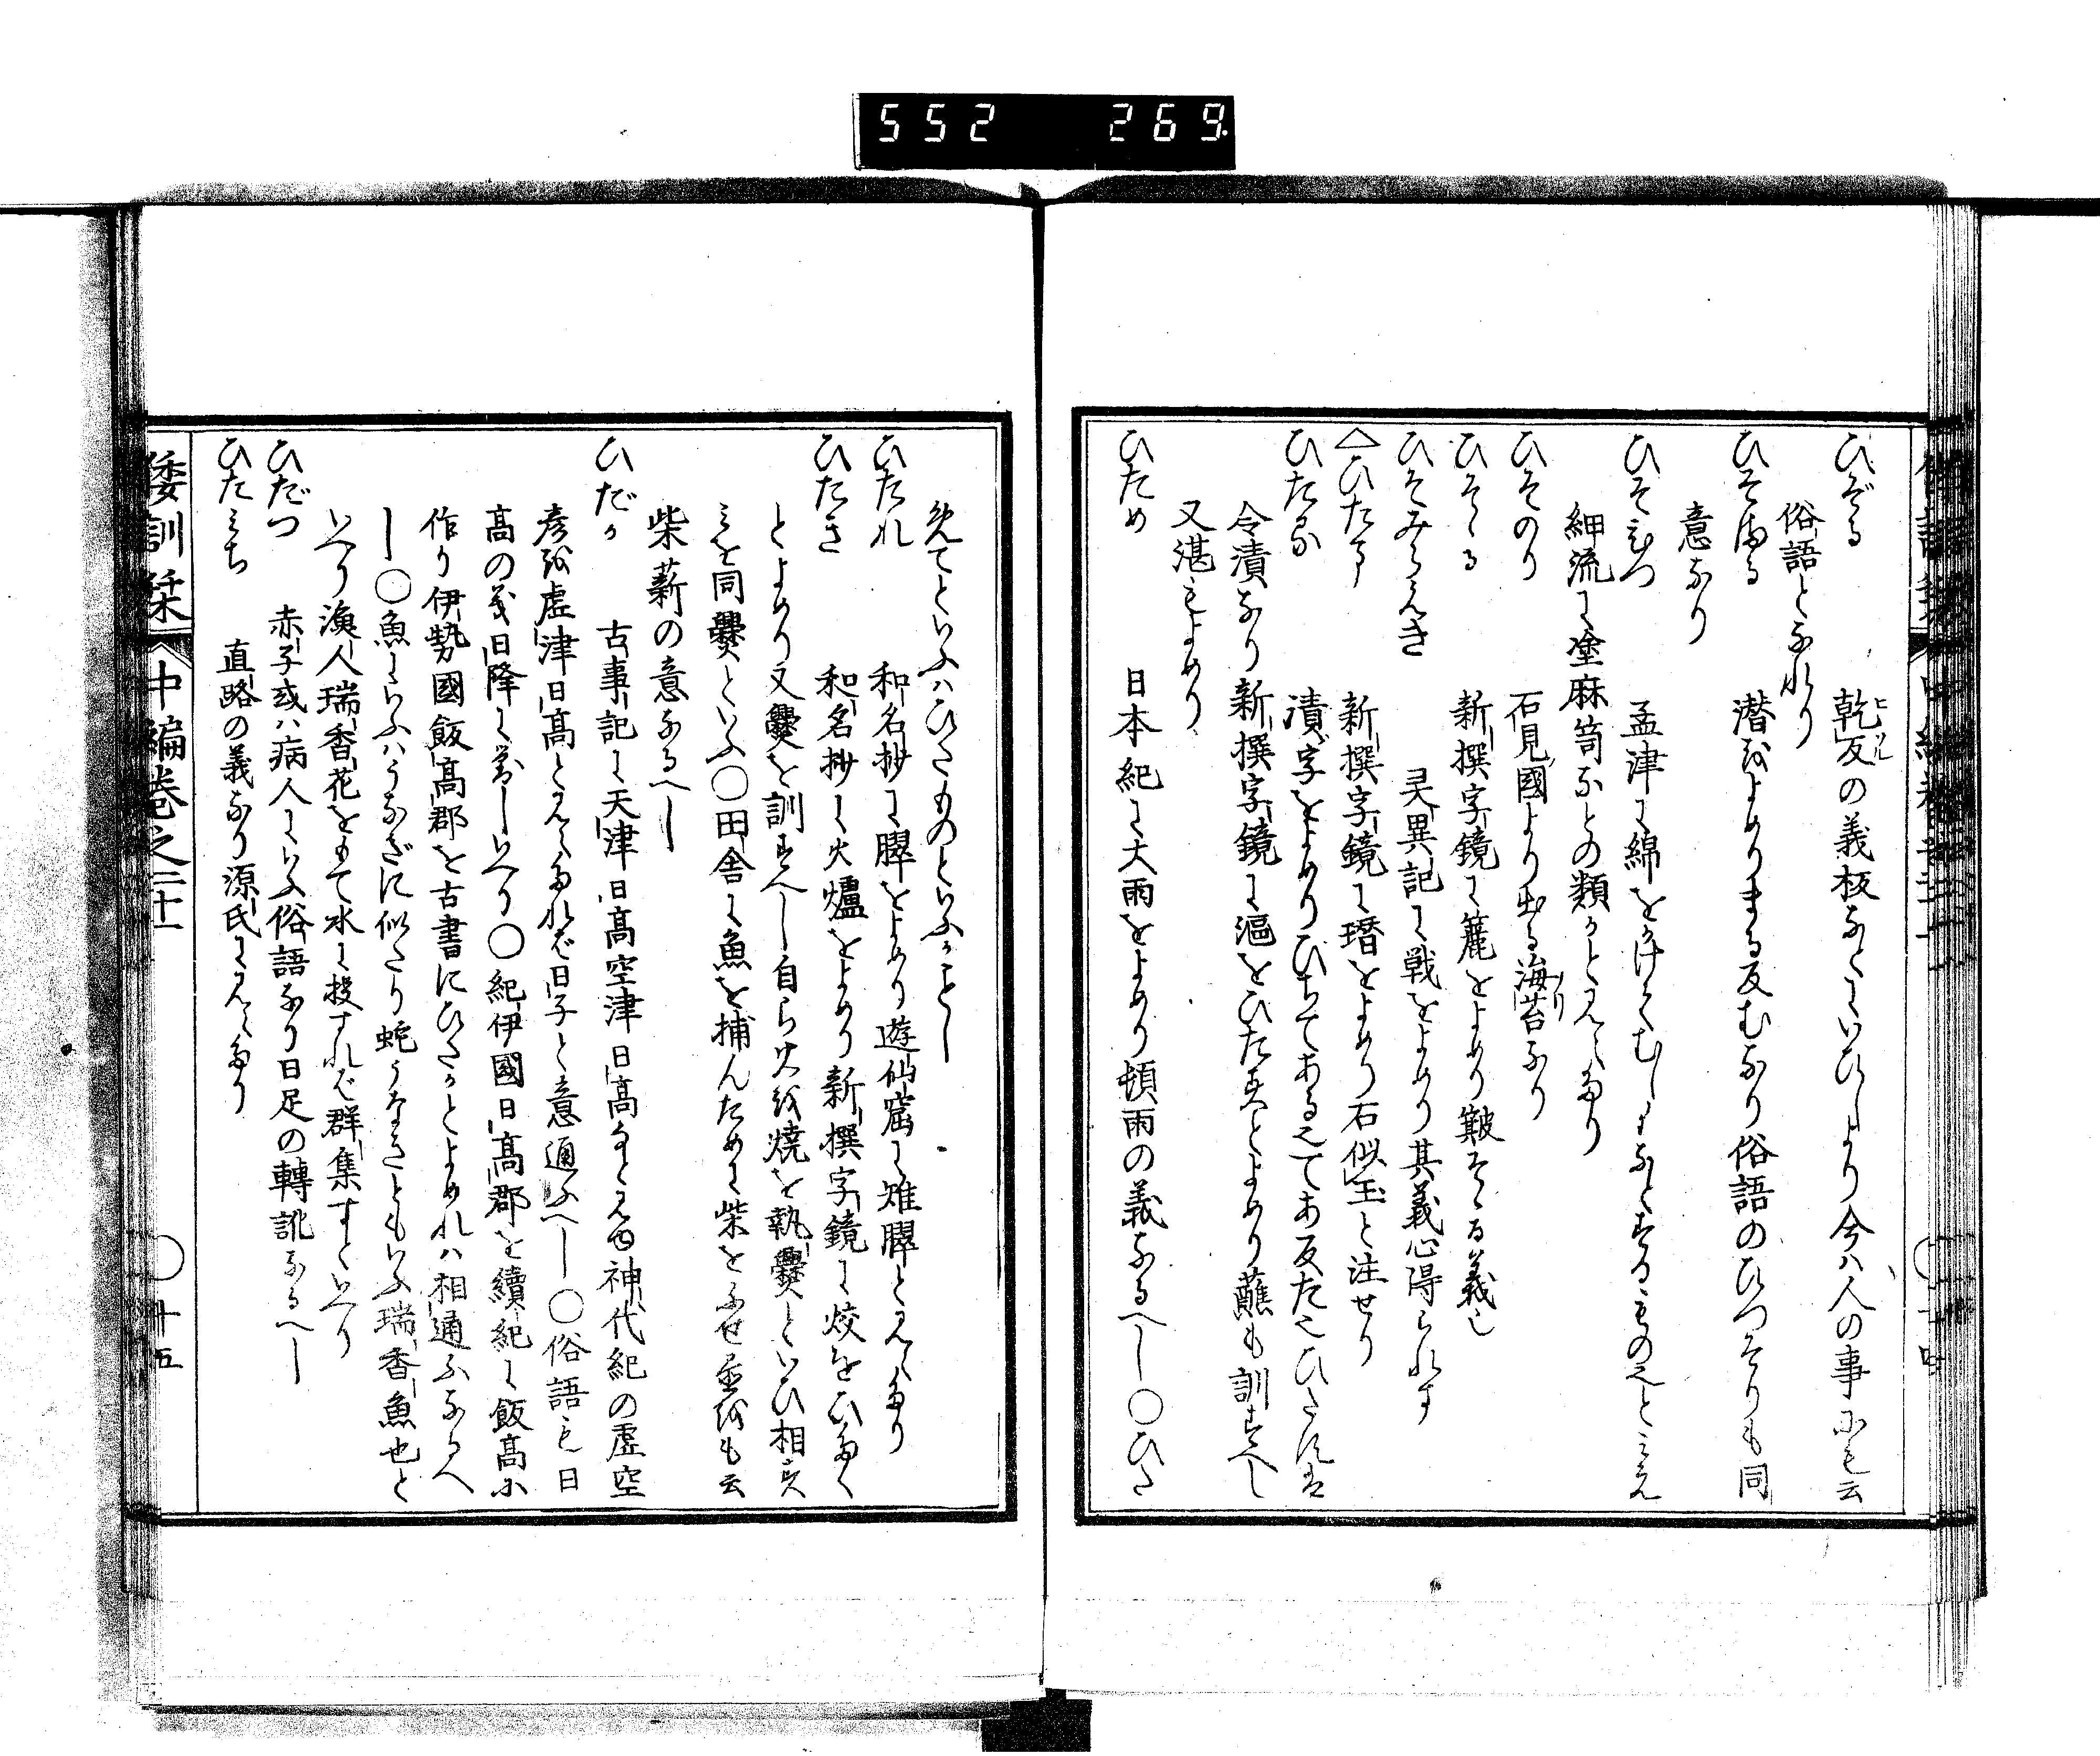 552 269
ひぞる 乾反の義板などにいひしより今ハ人の事にも云
ヒソル
俗語となれり
ひそまる 潜をよめりまる反むなり俗語のひつそりも同
意なり
ひそむつ 孟津に綿をかけてむしりなとするもの也とミえ
細流に塗麻笥なとの類かとみえたり
ひそのり 石見國より出る海苔なり
ノリ
ひそゝる 新撰字鏡に簸をよめり皺そゝる義也
ひそみらんき 灵異記に戦をよめり其義心得られす
△ひたる 新撰字鏡に瑨をよめり石似玉と注せり
ひたる 漬字をよめりひちてある也てあ反た也ひたすは
令漬なり新撰字鏡に漚をひたすとよめり蘸も訓すへし
又湛もよめり
ひため 日本紀に大雨をよめり頓雨の義なるへし〇ひた
めてといふハひたものといふかことし
ひたれ 和名抄に臎をよめり遊仙窟に雉臎とみえたり
ひたき 和名抄に火爐をよめり新撰字鏡に烄をひたく
とよめり又爨を訓すへし自ら火を焼を執爨といひ相共
にを同爨といふ〇田舎に魚を捕んために柴をふせ置をも云
柴薪の意なるへし
ひだか 古事記に天津日高空津日高なとみゆ神代紀の虚空
彦を虚津日高とみえたれば日子と意通ふへし〇俗語も日
高の義日降に對しいへり〇紀伊國日高郡を續紀に飯高に
作り伊勢國飯高郡を古書にひたかとよめれハ相通ふなるへ
し〇魚にいふハうなぎに似たり蛇うなきともいふ瑞香魚也と
いへり漁人瑞香花をもて水に投すれば群集すといへり
ひだつ 赤子或ハ病人にいふ俗語なり日足の轉訛なるへし
ひたみち 直路の義なり源氏にみえたり
倭訓栞 中編巻之二十一 〇 廿五